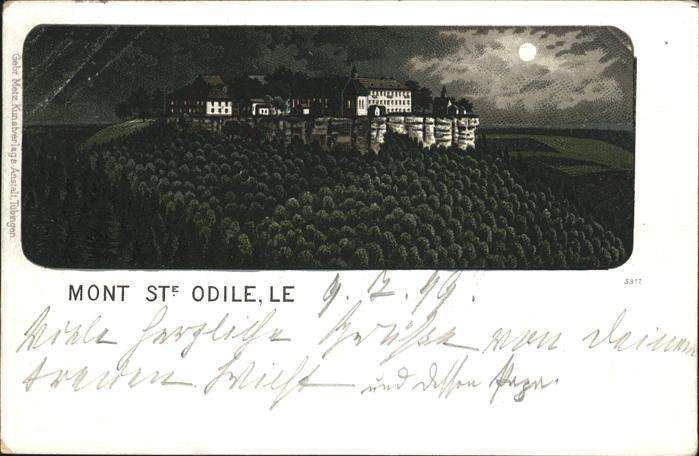 Gebr. Metz, Kunstverlags-Anstalt, Tübingen.
5917
MONT STE ODILE, LE 9. 7. 99.
Viele herzliche Grüße von Deinem
treuen und dessen Papa.